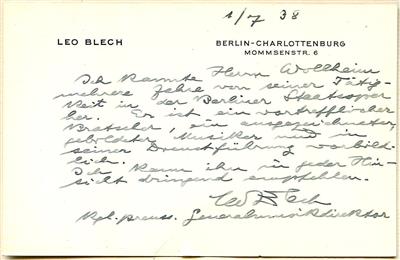 1/7 38
LEO BLECH
BERLIN-CHARLOTTENBURG
MOMMSENSTR. 6
Ich kannte Herrn Wollheim
mehrere Jahre von seiner Tätig-
keit in der Berliner Staatsoper
her. Er ist ein vortrefflicher
Bratscher, ein ausgezeichneter,
gebildeter Musiker und in
seiner Dienstführung vorbild-
lich.
Ich kann ihn in jeder Hin-
sicht dringend empfehlen.
Leo Blech
Kgl. preuss. Generalmusikdirektor